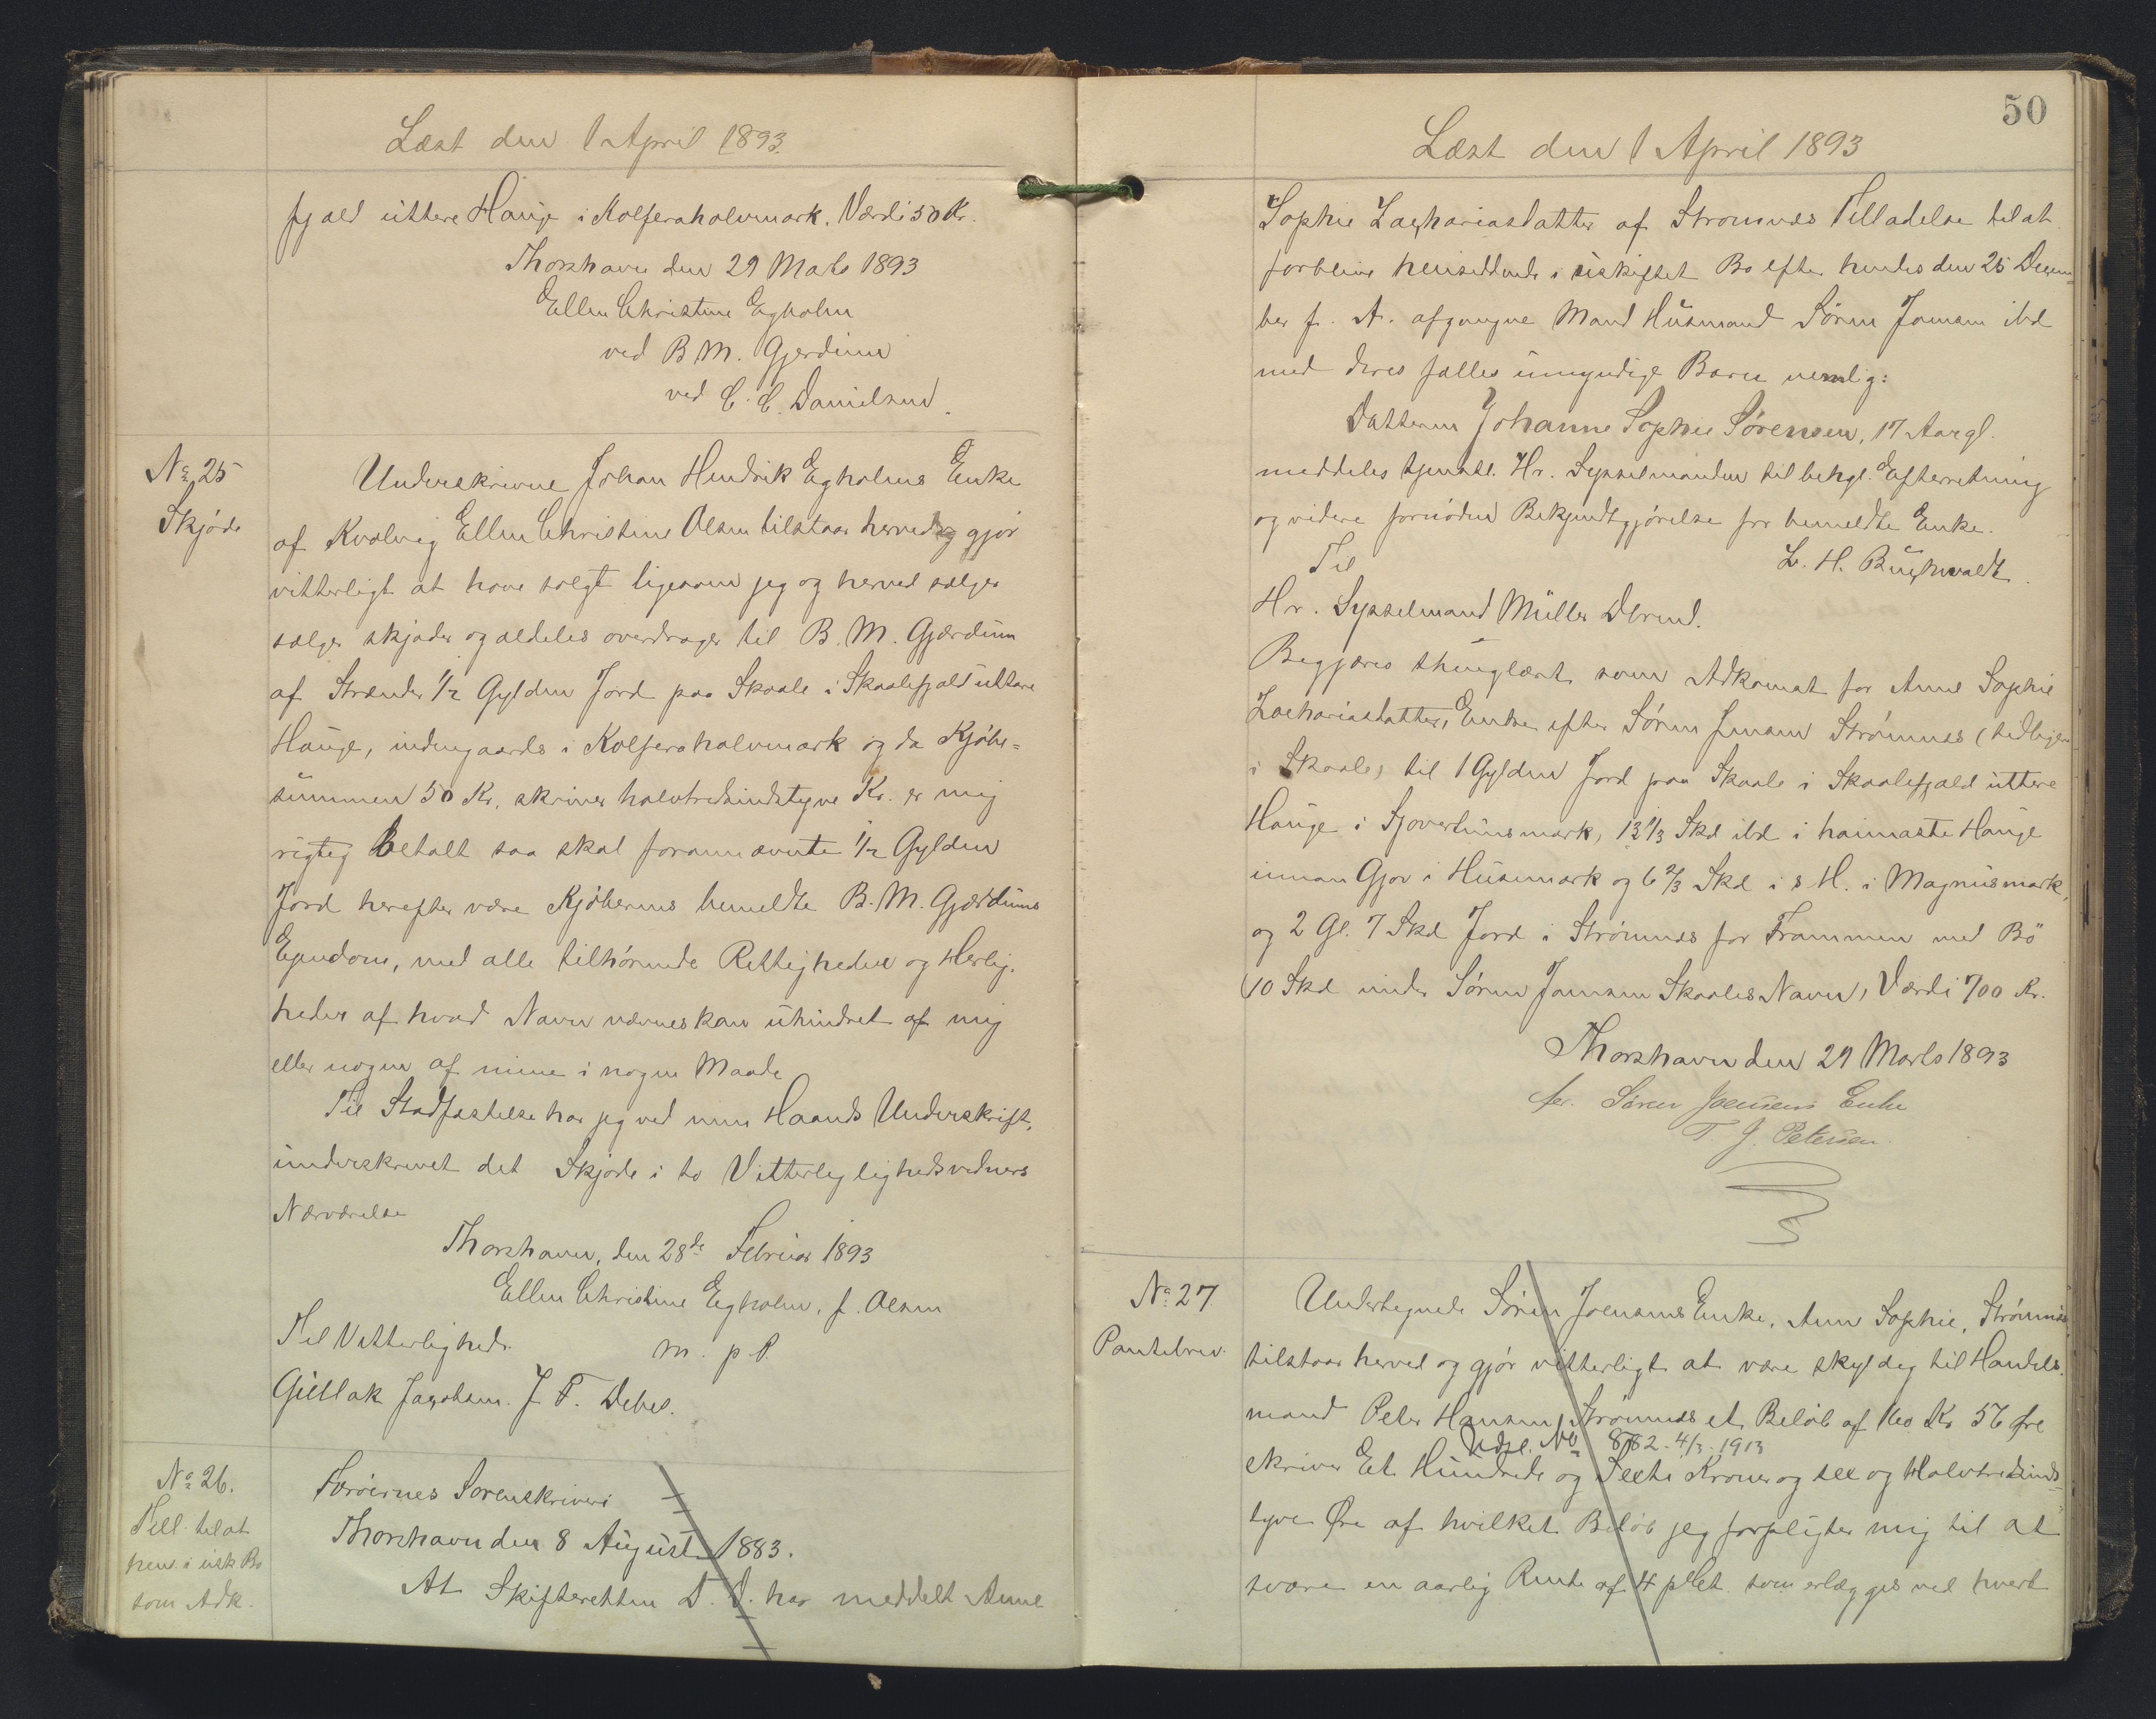 Læst den 1 April 1893.
fjeld uttere Hauge i Kolferahalvmark. Værdi 50 Kr.
Thorshavn den 29 Marts 1893
Ellen Christine Egholm
ved B M. Gjerdum
ved C. C. Danielsen.
No 25
Skjøde
Underskrevne Johan Hendrik Egholms Enke
af Kvalvig Ellen Christine Olsen tilstaar herved og gjør
vitterligt at have solgt ligesom jeg og herved sælger
sælger skjøder og aldeles overdrager til B. M. Gjærdum
af Strænder 1/2 Gylden Jord paa Skaale i Skaalefjeld uttere
Hauge, indengaards i Kolferahalvmark og da Kjöbe-
summen 50 Kr. skriver halvtredsindstyve Kr. er mig
rigtig betalt saa skal forannævnte 1/2 Gylden
Jord herefter være Kjöberens bemeldte B. M. Gjærdums
Ejendom, med alle tilhörende Rettigheder og Herlig-
heder af hvad Navn nævnes kan uhindret af mig
eller nogen af mine i nogen Maade
Til Stadfæstelse har jeg ved min Haands Underskrift,
underskrevet det Skjøde i to Vitterliglighedsvidners
Nærværelse
Thorshavn, den 28de Februar 1893
Ellen Christine Egholm, f. Olsen
Til Vitterlighed.
m. p. P.
Gutlak Jacobsen. J. F. Debes.
No 26.
Till. til at
hens. i usk Bo
som Adk.
Færöernes Sorenskriveri
Thorshavn den 8 August 1883.
At Skifteretten D. D. har meddelt Anne
50
Læst den 1 April 1893
Sophie Zachariasdatter af Strømnæs Tilladelse til at
forblive hensiddende i uskiftet Bo efter hendes den 25 Decem-
ber f. A. afgangne Mand Husmand Sören Joensen ibd
med deres fælles umyndige Barn nemlig:
Datteren Johanne Sophie Sørensen, 17 Aar gl.
meddeles tjenstl. Hr. Sysselmanden til behgl. Efterretning
og videre fornöden Bekjendtgjörelse for bemeldte Enke.
Til
L. H. Buchwaldt.
Hr. Sysselmand Müller Dbrmd.
Begjæres thinglæst som Adkomst for Anne Sophie
Zachariasdatter, Enke efter Sören Jensen Strömnæs (tidligere
i Skaale) til 1 Gylden Jord paa Skaale i Skaalefjeld uttere
Hauge i Sjoverhusmark, 13 1/3 Skd ibd i haimaste Hauge
innan Gjov i Husemark og 6 2/3 Skd i s H. i Magnusmark,
og 2 Gl. 7 Skd Jord i Strömnæs for Frammen med Bö
(10 Skd under Sören Joensen Skaales Navn), Værdi 700 Kr.
Thorshavn den 29 Marts 1893
for Søren Joensens Enke
T. J. Petersen
No 27.
Pantebrev.
Undertegnede Sören Joensens Enke, Ann Sophie, Strömnæs,
tilstaar herved og gjör vitterligt at være skyldig til Handels-
mand Peter Hansen, Strömnæs et Belöb af 160 Kr 56 Øre
Udsl. No 882 - 4/3 - 1913
skriver Et Hundrede og Sexti Kroner og sex og Halvtredsinds-
tyve Øre af hvilket Belöb jeg forpligter mig til at
svare en aarlig Rente af 4 pCt. som erlægges ved hvert